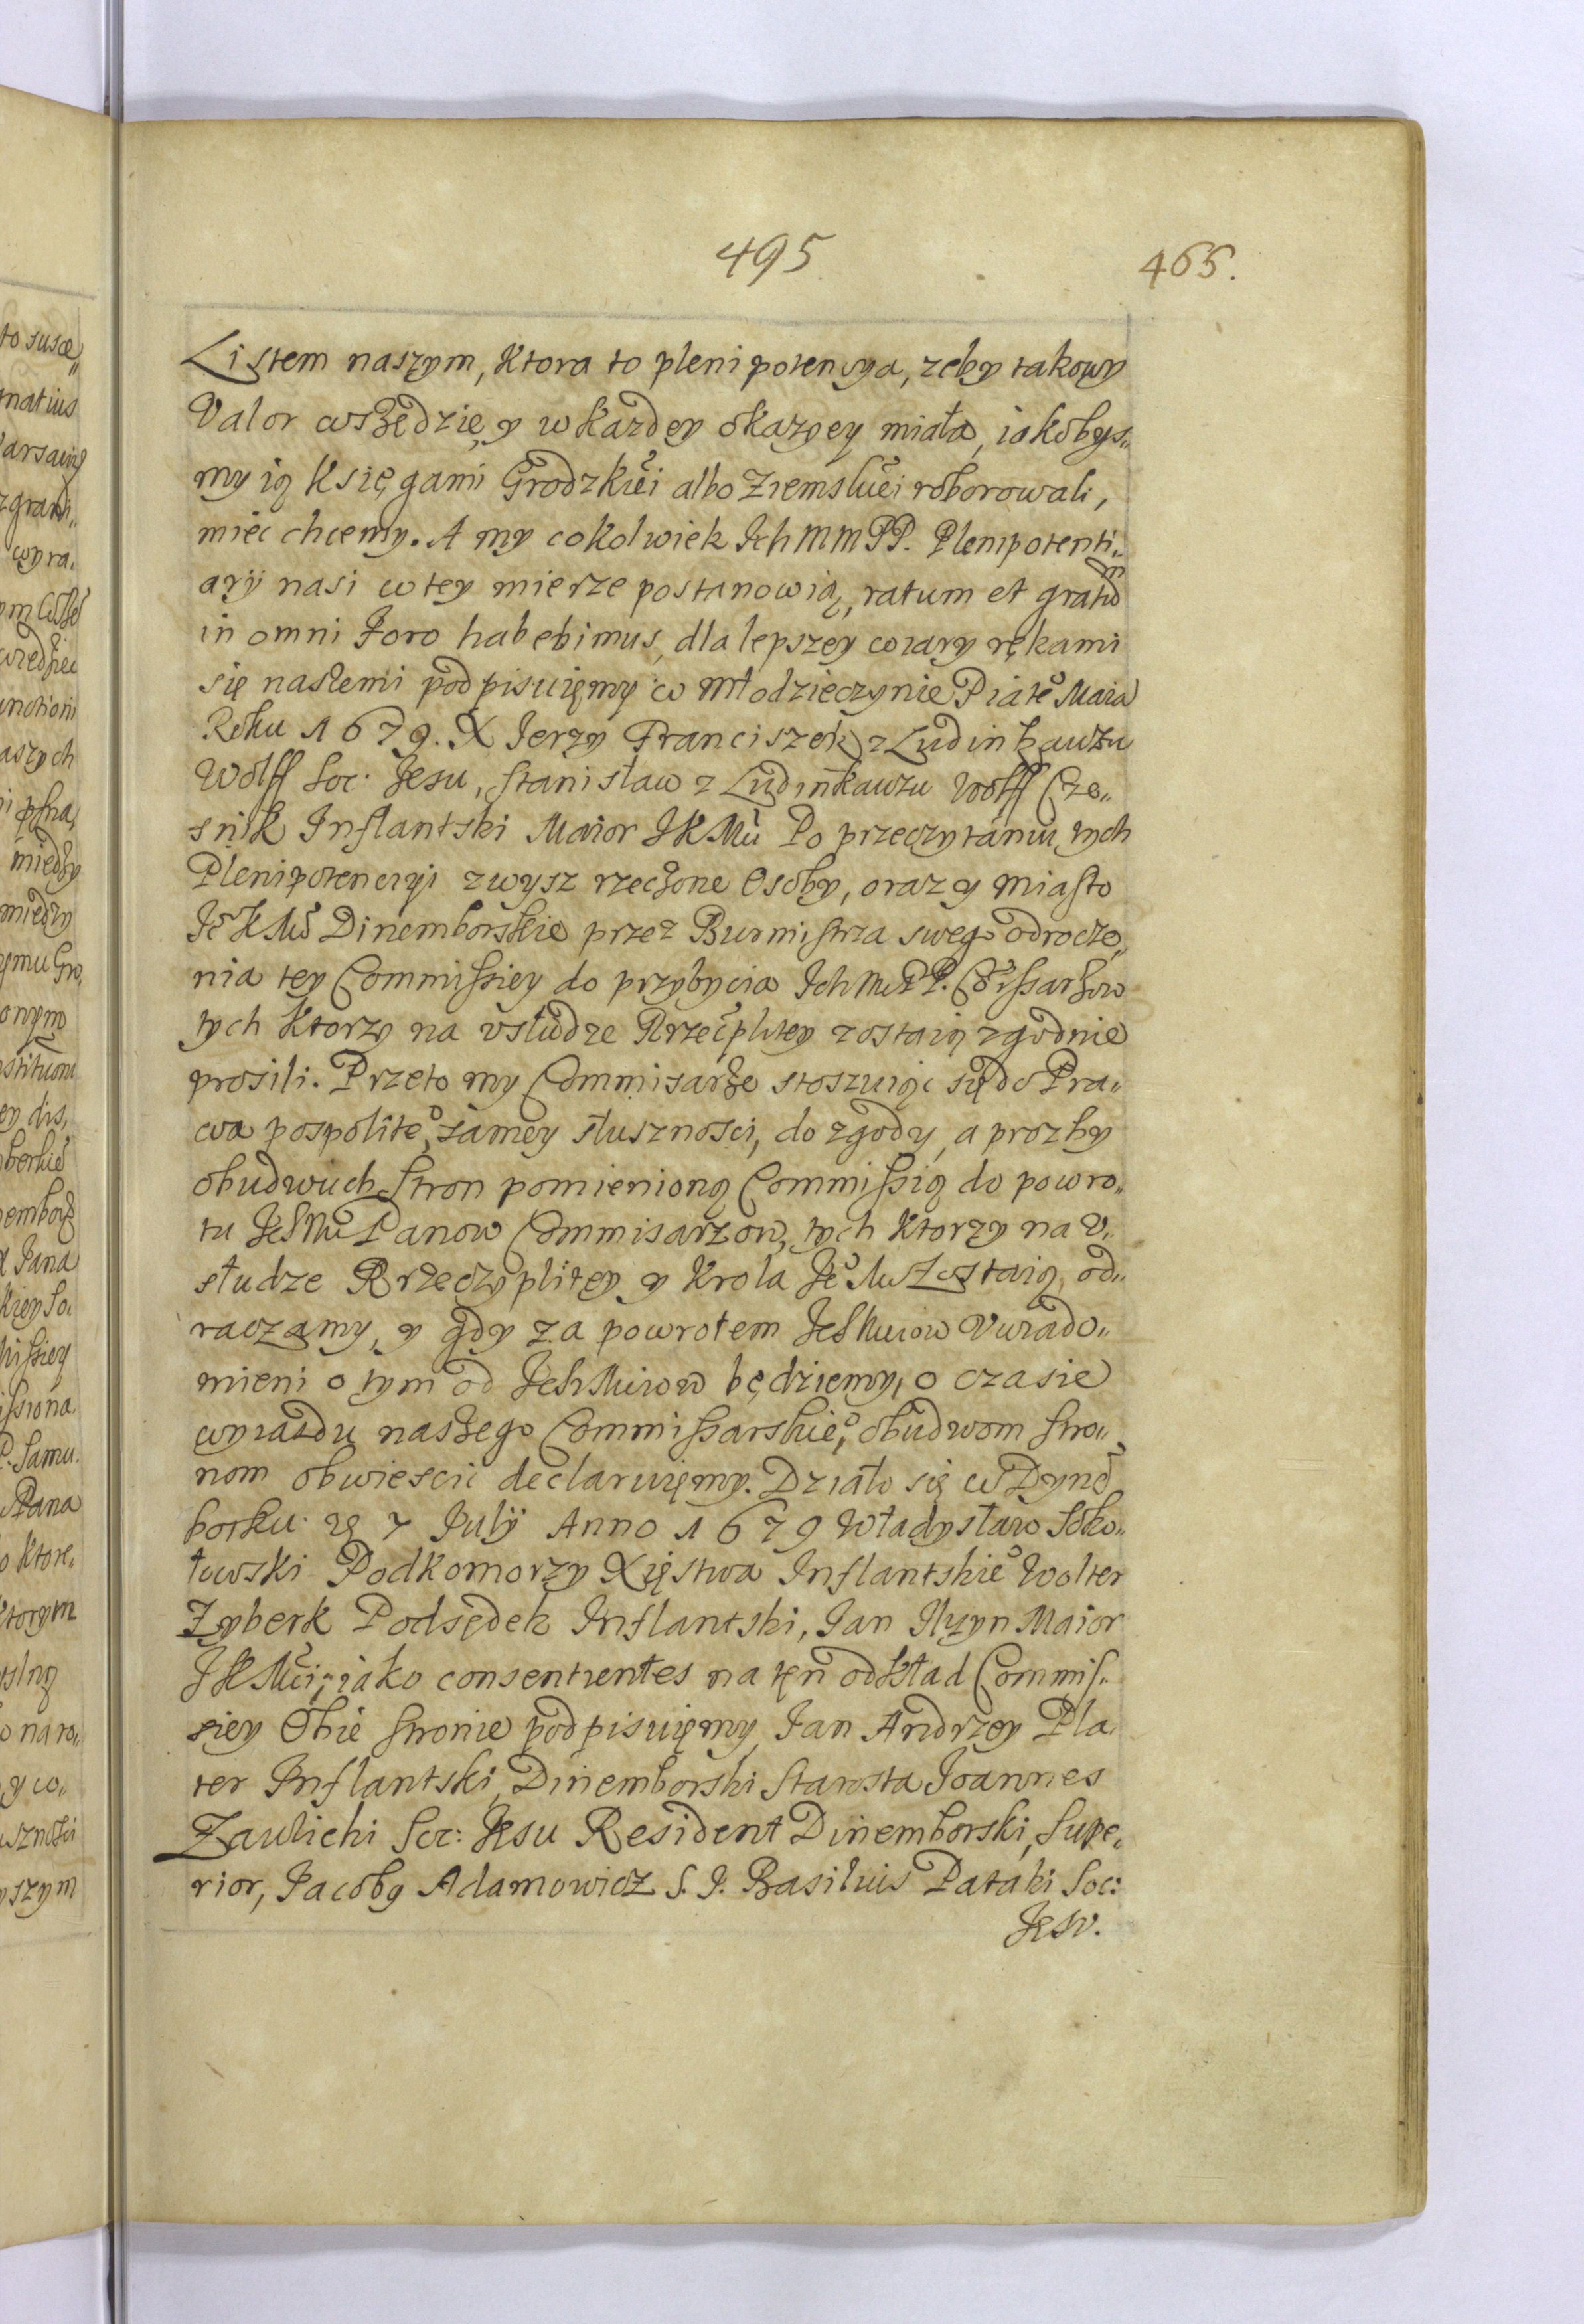 495
465.
Listem naszym, Ktora to plenipotensya, zeby takowy
Valor wszędzie y w kazdey okazyey miała, iakobys„
my ią Księgami Grodzkiĕi albo Ziemskĕi roborowali,
miec chcemy. A my cokolwiek Ich MM PP. Plenipotenti„
arÿ nasi w tey mierze postanowią, ratum et gratũ
in omni Foro habebimus, dla lepszey wiary rękami
się naszemi podpisuięmy w Młodzieczynie Piate͛ Maia
Roku 1679. X Jerzy Franciszek z Ludinhauzu
Wolff Soc. Jesu, Stanisław z Ludinkauzu Wolff Cze„
snik Inflantski Maior JKMĉi Po przeczytaniu tych
Plenipotencyi zwysz rzeczone Osoby, oraz y Miasto
Je͛ K Mĉi Dinemborskie przez Burmistrza swego odrocze„
nia tey Commissiey do przybycia Ich Mĉi PP. Cõissarzow
tych Ktorzy na vsłudze Rzeĉplitey zostaią zgodnie
prosili. Przeto my Commisarze stoszuiąc się do Pra„
wa pospolite͛, samey słusznosci, do zgody, a prozby
obudwuch Stron pomienioną Commissią do powro„
tu IchMĉi Panow Commisarzow, tych Ktorzy na v„
słudze Rzeczyplitey y Krola Je͛ Mĉi zostaią, od„
raczamy, y gdy za powrotem IchMciow Vwiado„
mieni o tym od IchMciow będziemy, o czasie
wyiazdu naszego Commissarskie͛, obudwom stro„
nom obwiescic declaruięmy. Działo się w Dyne͂
borku 7 Julÿ Anno 1679 Władysław Soko„
łowski Podkomorzy Xięstwa Inflantskie͛ Wolter
Zyberk Podsędek Inflantski, Jan Ilzyn Maior
JKMĉi, iako consentientes na ten odkład Commis„
siey Obie stronie podpisuięmy, Jan Andrzey Pla„
ter Inflantski, Dinemborski Starosta Joannes
Zawlicki Soc: Jesu Resident Dinemborski, Supe„
rior, Jacoby Adamowicz S. J. Basilius Pataki Soc:
Jesv.